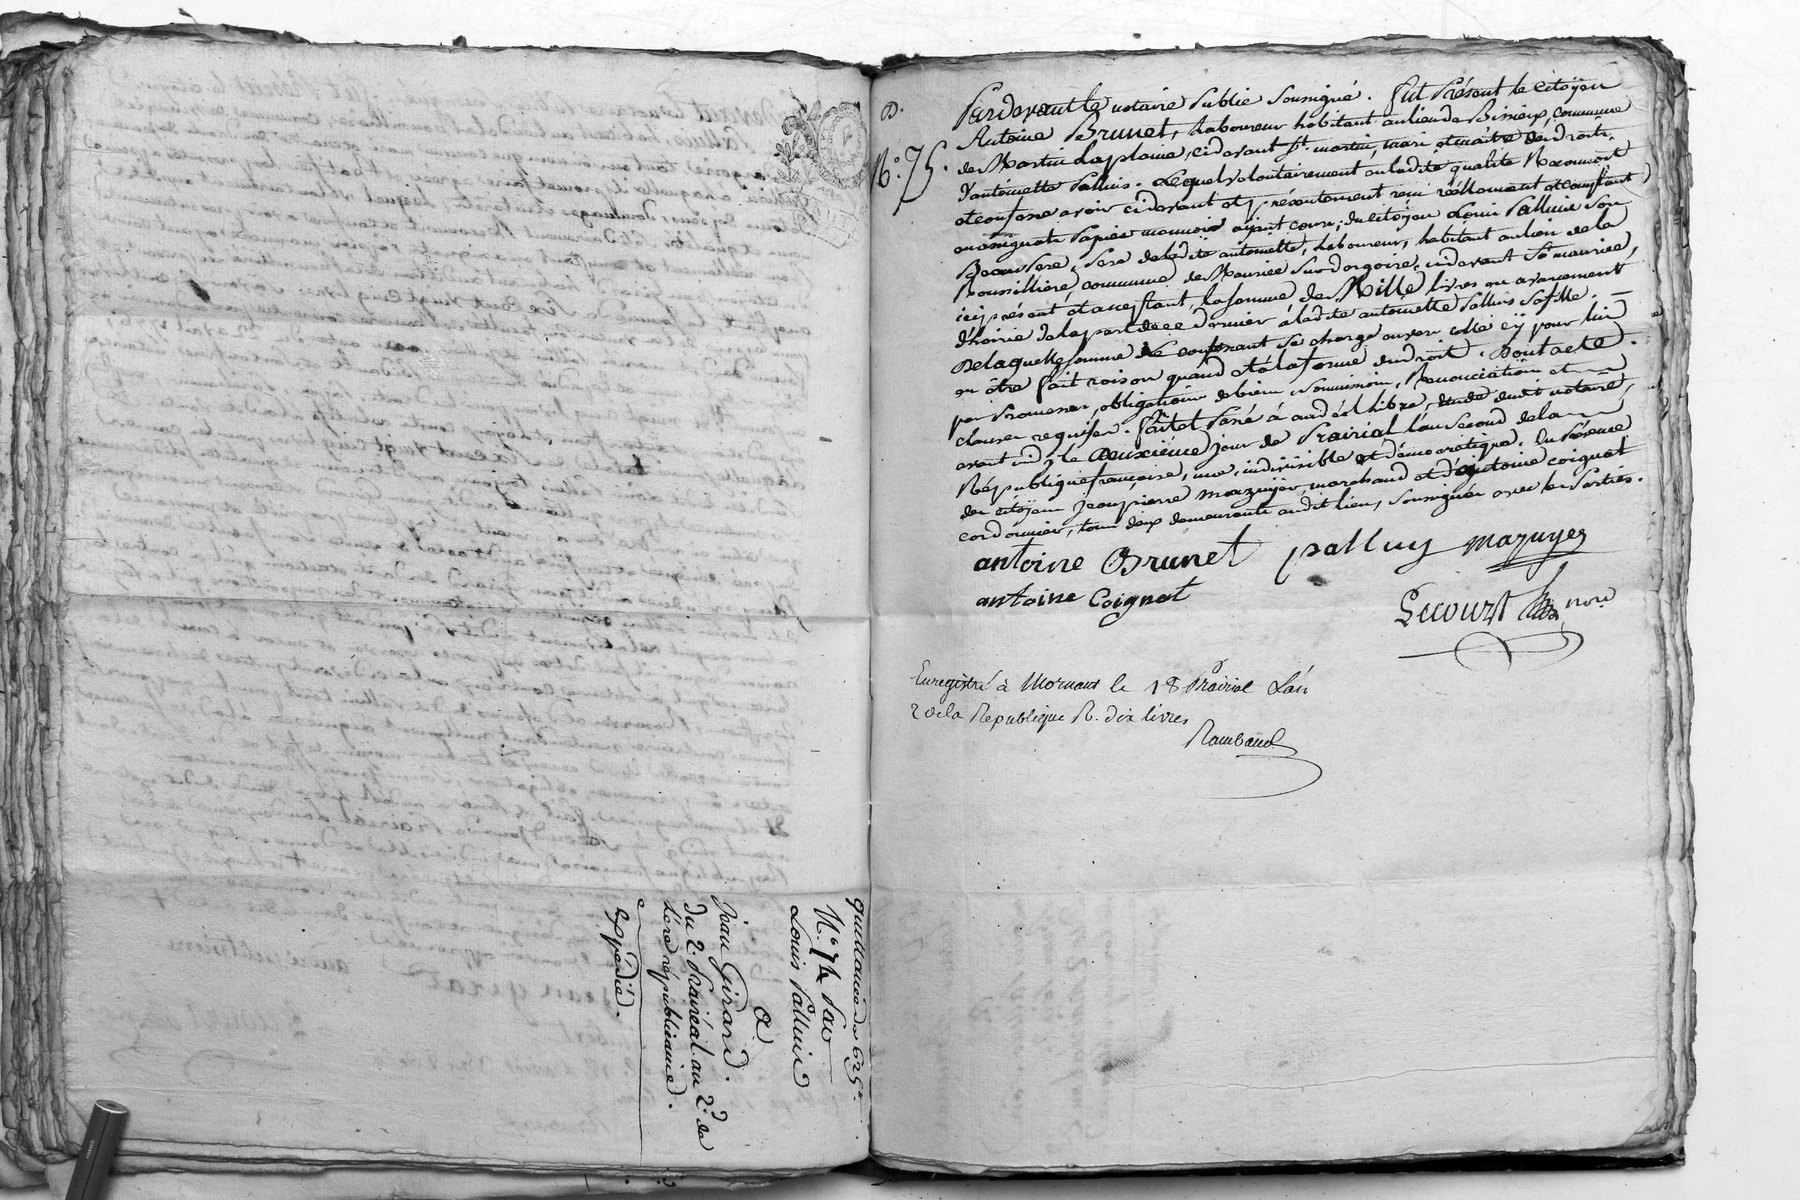 quittance de 625ᵗ
N.º 74 par
Louis Palluis
a
jean Girard.
du 2. Prairéal an 2.d de
L'ére républicaine.
Expédié.
D.
N.º 75.
Pardevant le notaire Public soussigné. fut Présent le citöyen
Antoine Brunet, laboureur habitant au lieu de Bissieux, commune
de Martin Laplaine, cidevant St. martin, mari et maitre des droits
d'antoinette Palluis. Lequel volontairement en ladite qualité Reconnoit
et confesse avoir cidevant et présentement reçu réellement et comptant
en assignats Papier monnoie ayant cours; du citöyen Louis Palluis son
Beau Pere, Pere de ladite antoinette, laboureur, habitant au lieu de la
Roussilliere, commune de Maurice Surdorgoire, cidevant St. maurice,
ici présent et acceptant, la somme de Mille livres en avancement
d'hoirie de la part de ce dernier à ladite antoinette Palluis sa fille.
De laquelle somme le confessant se charge envers celle cÿ pour lui
en être fait raison quand et à la forme du droit. Dont acte.
par Promesses, obligations de biens, soumissions, Renonciations et
clauses requises. fait et Passé à andéol libre, étude dudit notaire,
avant midy le deuxieme jour de Prairial l'an second de la
République françoise, une, indivisible et démocratique. En Présence
des citöyens jean pierre mazuÿer marchand et d'antoine coignet
cordonnier, tous deux demeurants audit lieu, soussignés avec les Parties.
antoine Brunet palluy mazuyer
antoine Coignet
Lecourt nore
Enregistré à Mornant le 18 Prairial L'an
2 de la Republique R. dix livres
Rambaud